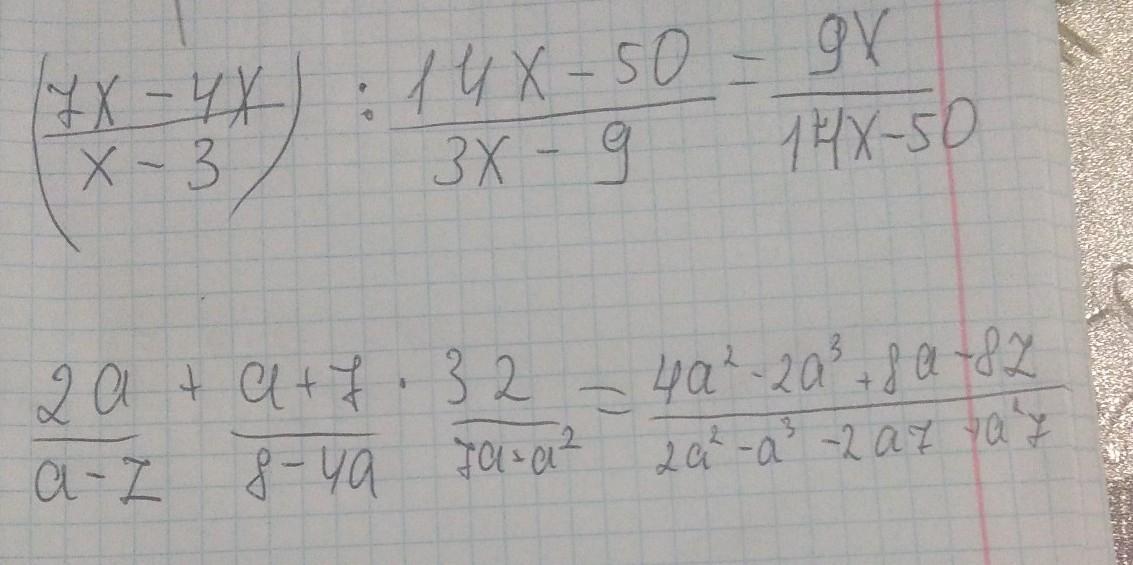 (7x - 4x / x - 3) : 14x - 50 / 3x - 9 = 9x / 14x - 50
2a / a - 7 + a + 7 / 8 - 4a · 32 / 7a - a² = 4a² - 2a³ + 8a + 87 / 2a² - a³ - 2a7 + a²7